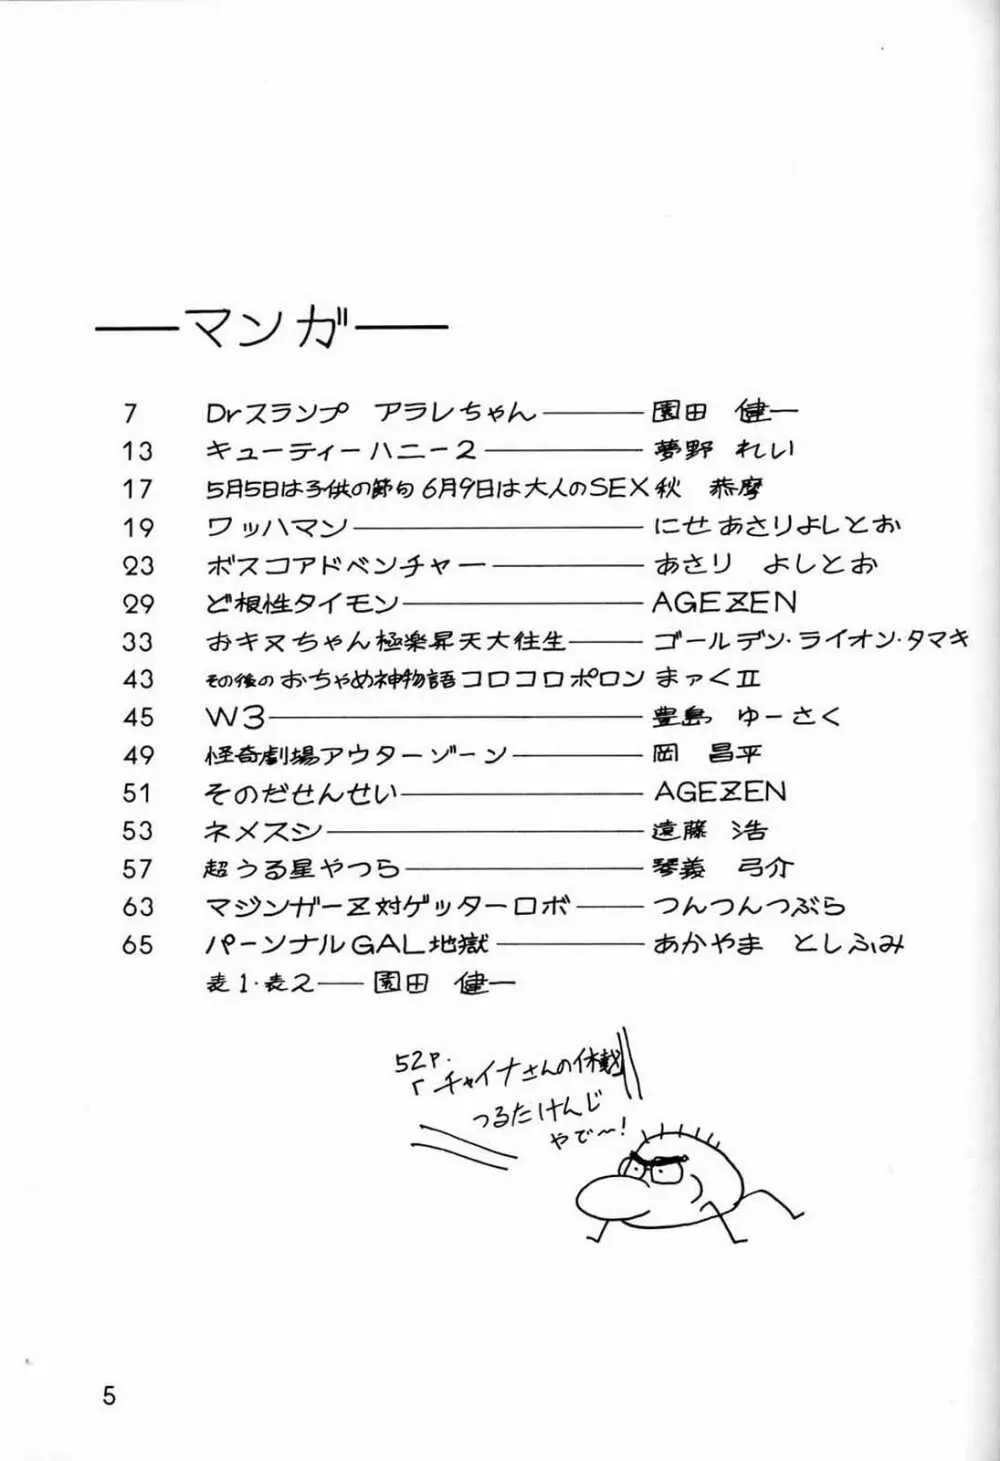 —マンガ—
7 Drスランプ アラレちゃん——園田 健一
13 キューティーハニー2——夢野 れい
17 5月5日は子供の節句 6月9日は大人のSEX 秋 恭摩
19 ワッハマン——にせ あさりよしとお
23 ボスコアドベンチャー——あさり よしとお
29 ど根性タイモン——AGEZEN
33 おキヌちゃん極楽昇天大往生——ゴールデン・ライオン・タマキ
43 その後の おちゃめ神物語コロコロポロン まァくII
45 W3——豊島 ゆーさく
49 怪奇劇場アウターゾーン——岡 昌平
51 そのだせんせい——AGEZEN
53 ネメスシ——遠藤 浩
57 超うる星やつら——琴義 弓介
63 マジンガーZ対ゲッターロボ——つんつんつぶら
65 パーソナルGAL地獄——あかやま としふみ
表1・表2——園田 健一
52P.
「チャイナさんの休載」
つるたけんじ
やで〜!
5